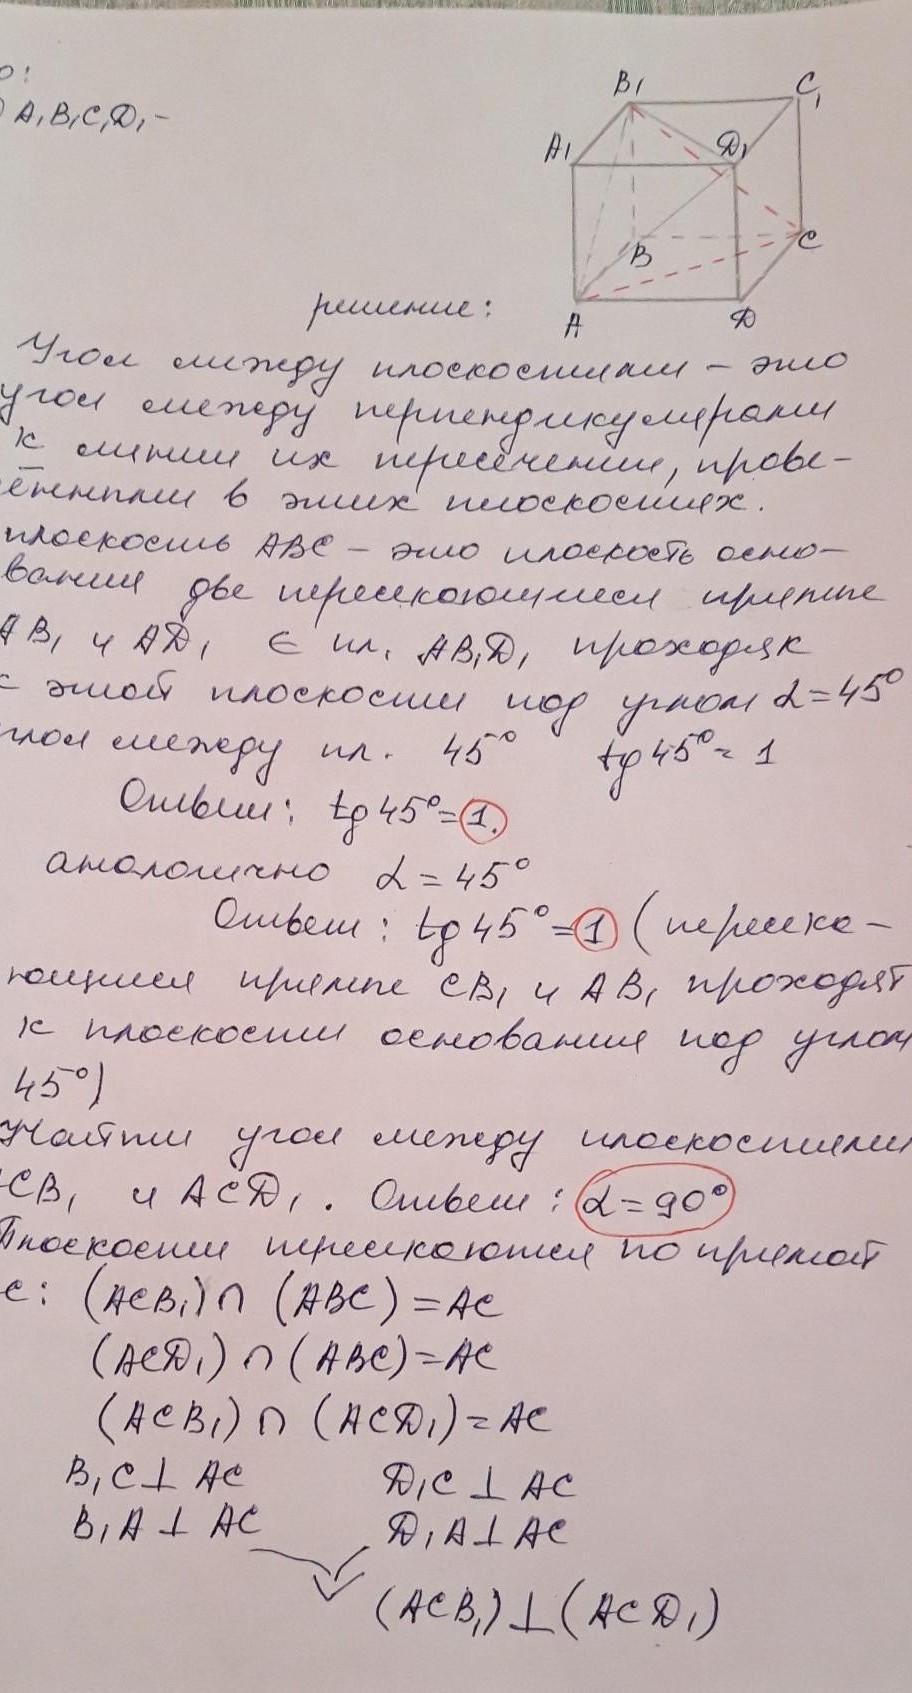 о:
A₁B₁C₁D₁ –
B₁ C₁
A₁ D₁
B C
A D
решение:
Угол между плоскостями – это
угол между перпендикулярами
к линии их пересечения, прове-
ёнными в этих плоскостях.
плоскость ABC – это плоскость осно-
вания две пересекающиеся прямые
AB₁ и AD₁ ∈ пл. AB₁D₁ проходяк
с этой плоскости под углом α=45°
гнол между пл. 45° tg45°= 1
Ответ: tg45°=1.
аналогично α = 45°
Ответ: tg45°=1 (пересека-
ющиеся прямые CB₁ и AB₁ проходят
к плоскости основания под углом
45°)
Найти угол между плоскостями
CB₁ и ACD₁. Ответ: α=90°
Плоскости пересекаются по прямой
с: (ACB₁) ∩ (ABC) = AC
(ACD₁) ∩ (ABC) = AC
(ACB₁) ∩ (ACD₁) = AC
B₁C ⊥ AC D₁C ⊥ AC
B₁A ⊥ AC D₁A ⊥ AC
(ACB₁) ⊥ (ACD₁)